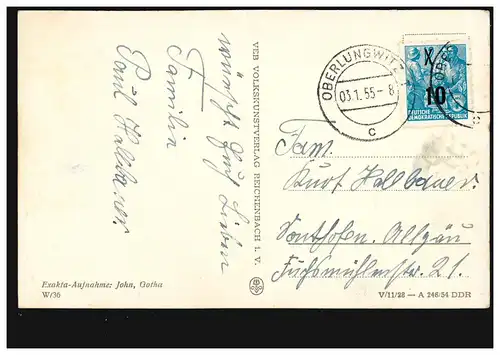 wünscht Euch Lieben
Familie
Paul Hallbauer
VEB VOLKSKUNSTVERLAG REICHENBACH I. V.
Exakta-Aufnahme: John, Gotha
W/36
OBERLUNGWITZ
03.1.55-8
c
X
10
DEUTSCHE
DEMOKRATISCHE REPUBLIK
OBER
c
Fam.
Kurt Hallbauer.
Sonthofen. Allgäu
Fuchsmühlenstr. 21.
V/11/28 — A 246/54 DDR